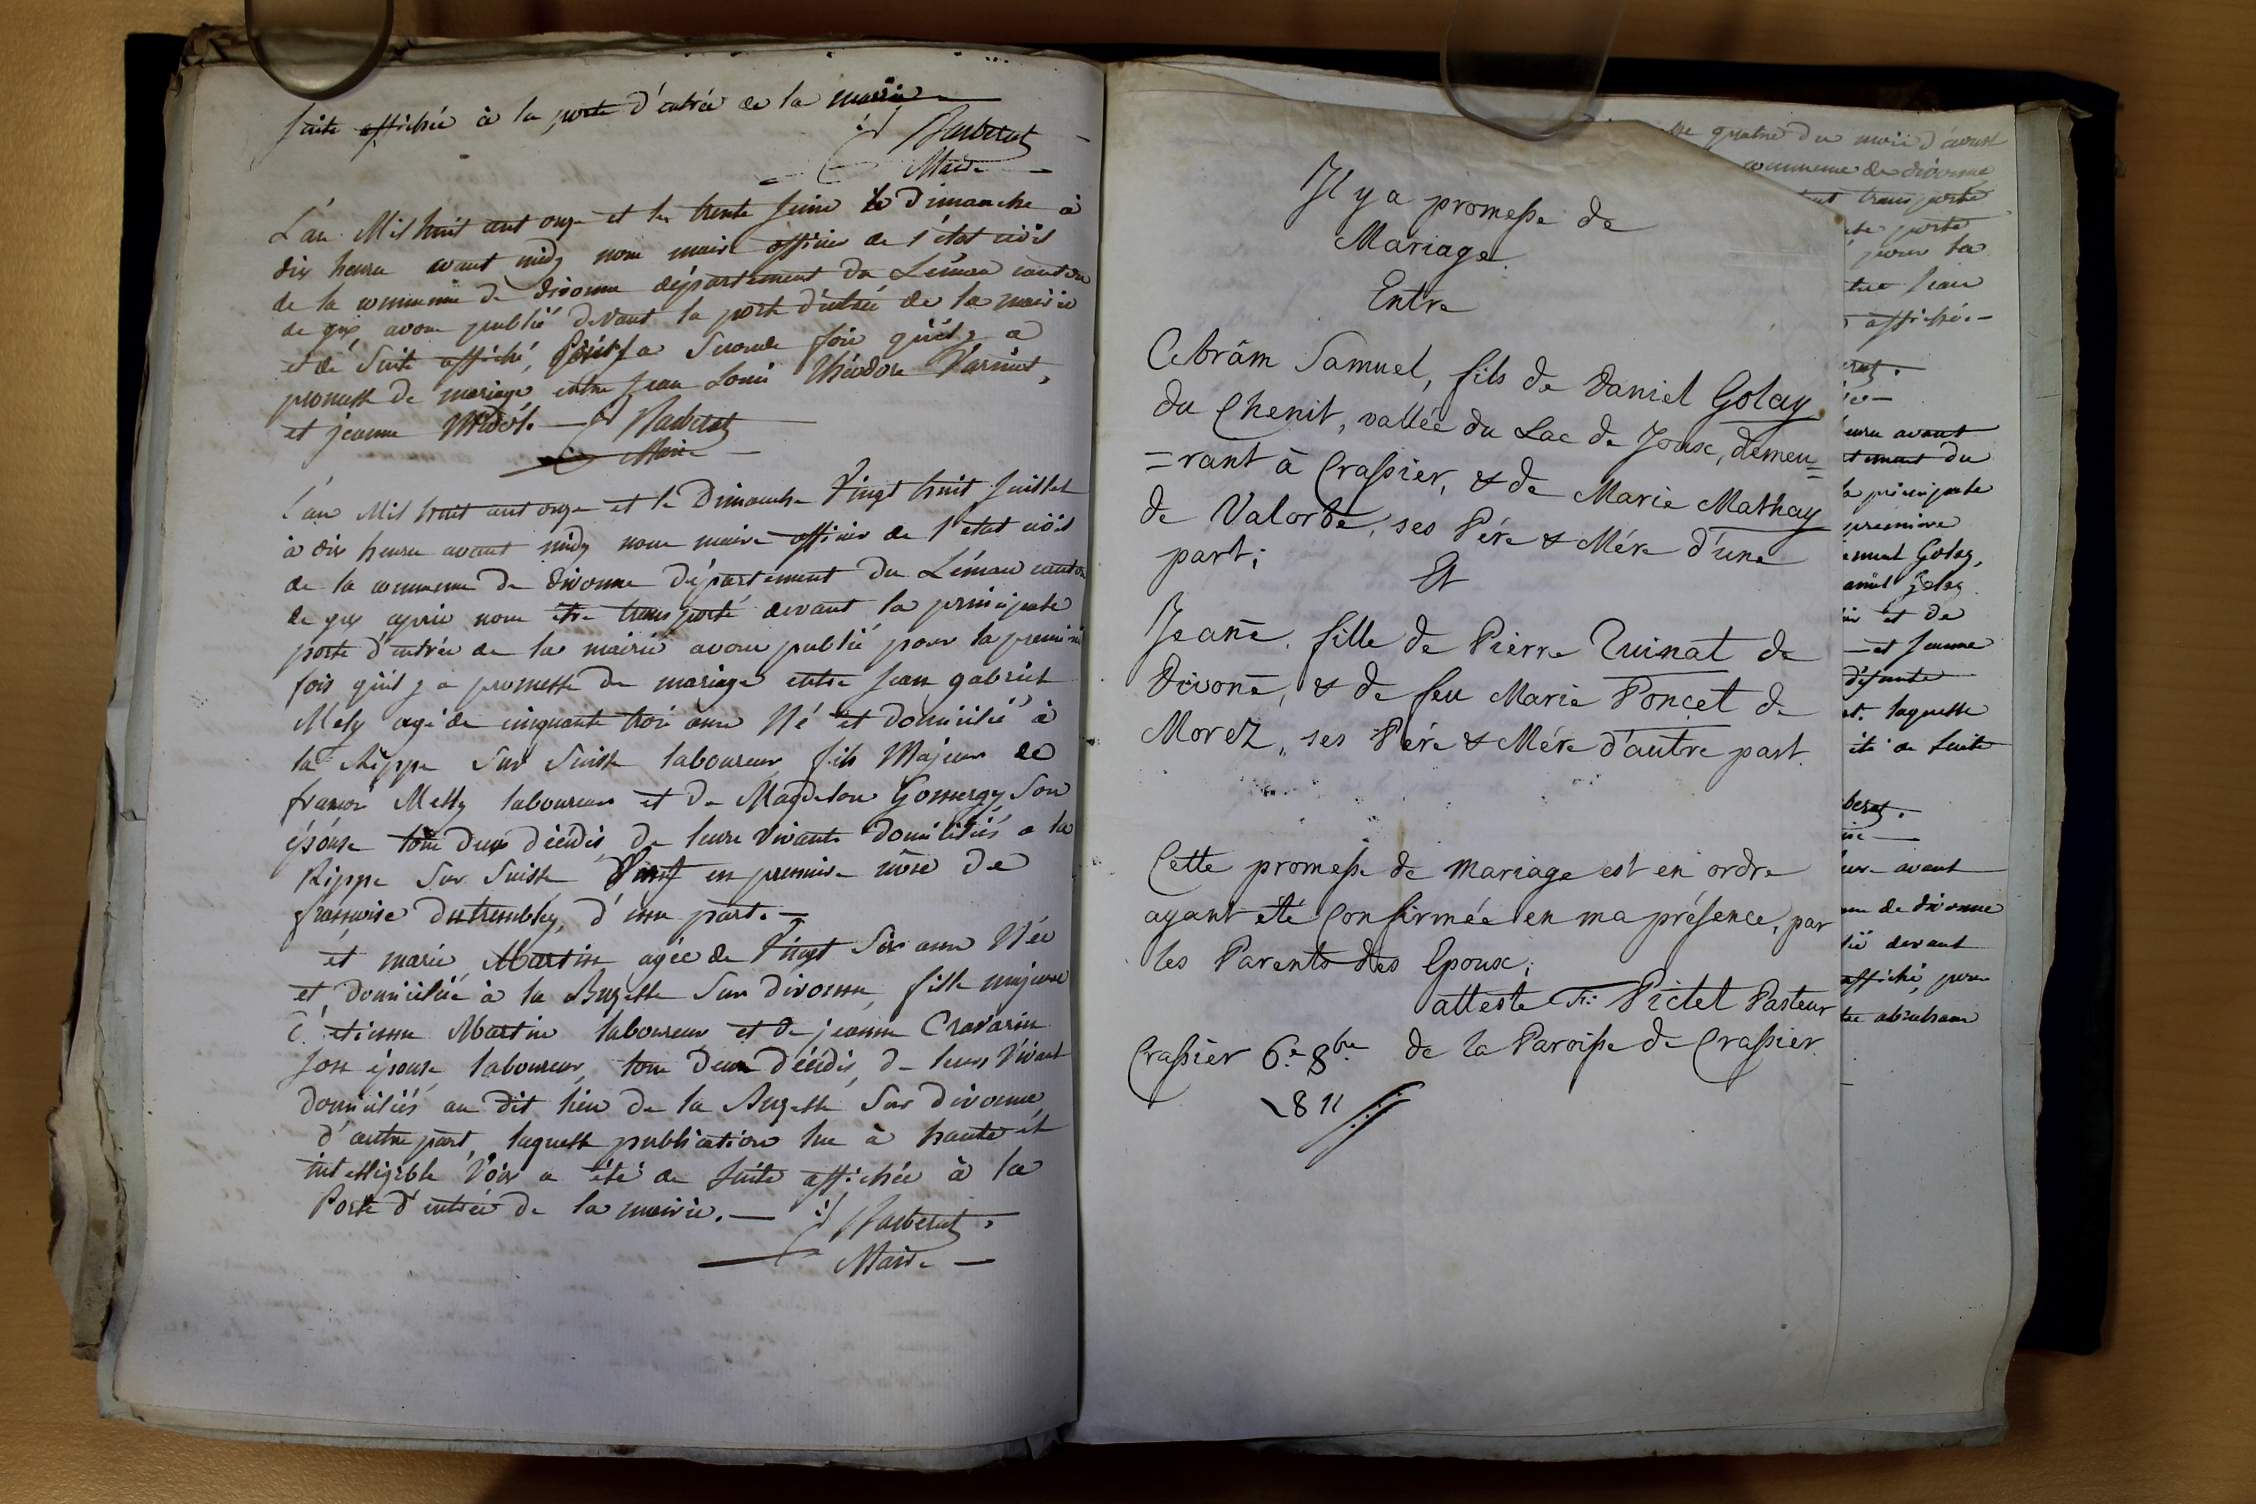 suite affichée à la porte d'entrée de la mairie
Barberat
Maire
L'an Mil huit cent onze et le trente Juin le Dimanche à
dix heure avant midy nous maire officier de l'état civil
de la commune de divonne département du Léman canton
de gex, avons publié devant la porte d'entrée de la mairie
et de suite affiché, la seconde fois qu'il y a
promesse de mariage entre Jean Louis Théodore
et jeanne
Barberat
Maire
L'an Mil huit cent onze et le Dimanche Vingt huit Juillet
à dix heure avant midy nous maire officier de l'état civil
de la commune de divonne département du Léman canton
de gex après nous être transporté devant la principale
porte d'entrée de la mairie avons publié pour la premiere
fois qu'il y a promesse de mariage entre Jean gabriel
Messy agé de cinquante trois anns Né et domicilié à
la Rippe sur Suisse laboureur fils Majeur de
francois Messy laboureur et de Magdelon son
épouse tous deux décédés de leurs vivants domiciliés a la
Rippe sur Suisse Veuf en premiere nôce de
françoise dutrembley, d'une part.
et marie Martin agée de Vingt six anns Née
et domiciliée à la Bugette sur divonne, fille majeure
d'etienne Martin laboureur et de jeanne Cravarin
son épouse laboureur, tous deux décédés, de leurs vivant
domiciliés au dit lieu de la Bugette sur divonne
d'autre part, laquelle publication lue à haute et
intelligible voix a été de suite affichée à la
Porte d'entrée de la mairie.
Barberat
Maire
Il y a promesse de
Mariage
Entre
Abrâm Samuel, fils de Daniel Golay
du Chenit, vallée du Lac de Joux, demeu=
=rant à Crassier, & de Marie Mathay
de Valorbe, ses Pére & Mére d'une
part;
Et
Jeañe, fille de Pierre Tuinat de
Divoñe, & de feu Marie Ponçet de
Morez, ses Pére & Mére d'autre part.
Cette promesse de Mariage est en ordre
ayant été Confirmée en ma présence, par
les Parents des Epoux;
atteste Fr: Pictet Pasteur
Crassier 6.e 8bre de la Paroisse de Crassier.
1811
quatre du mois d'aoust
commune de divonne
transporté
porte
pour la
Jean
affichée
avant
du
la principale
premiere
Golay,
Golay
et de
et Jeanne
défunte
laquelle
été de suite
avant
de divonne
devant
affiché, pour
abraham